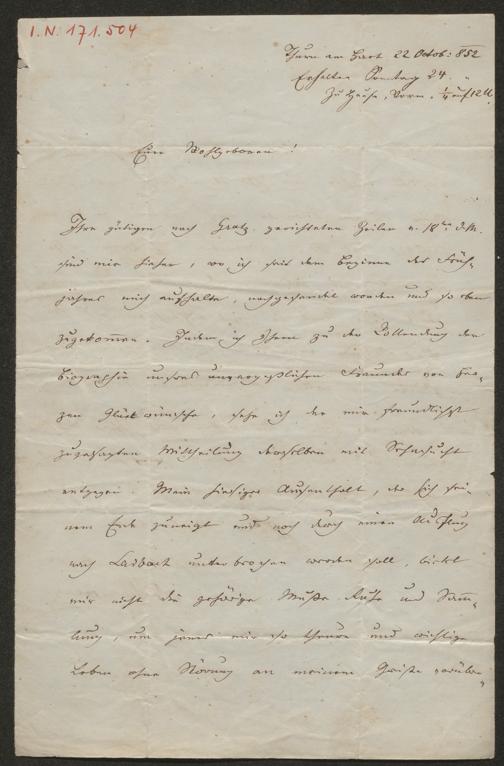 I. N. 171.504
Thurn am Hart 22 Octob: 852
Erhalten Sonntag 24. "
Zu Hause, Vorm. ¼ auf 12 U.
Euer Wohlgeboren!
Ihre gütigen nach Gratz gerichteten Zeilen v. 18ten d. M.
sind mir hieher, wo ich seit dem Beginne des Früh-
jahres mich aufhalte, nachgesendet worden und so eben
zugekommen. Indem ich Ihnen zu der Vollendung der
Biographie unseres unvergeßlichen Freundes von Her-
zen Glück wünsche, sehe ich der mir freundlichst
zugesagten Mittheilung derselben mit Sehnsucht
entgegen. Mein hiesiger Aufenthalt, der sich sei-
nem Ende zuneigt und noch durch einen Ausflug
nach Laibach unterbrochen werden soll, bietet
mir nicht die gehörige Muße Ruhe und Samm-
lung, um jenes mir so theure und wichtige
Leben ohne Störung an meinem Geiste vorüber-